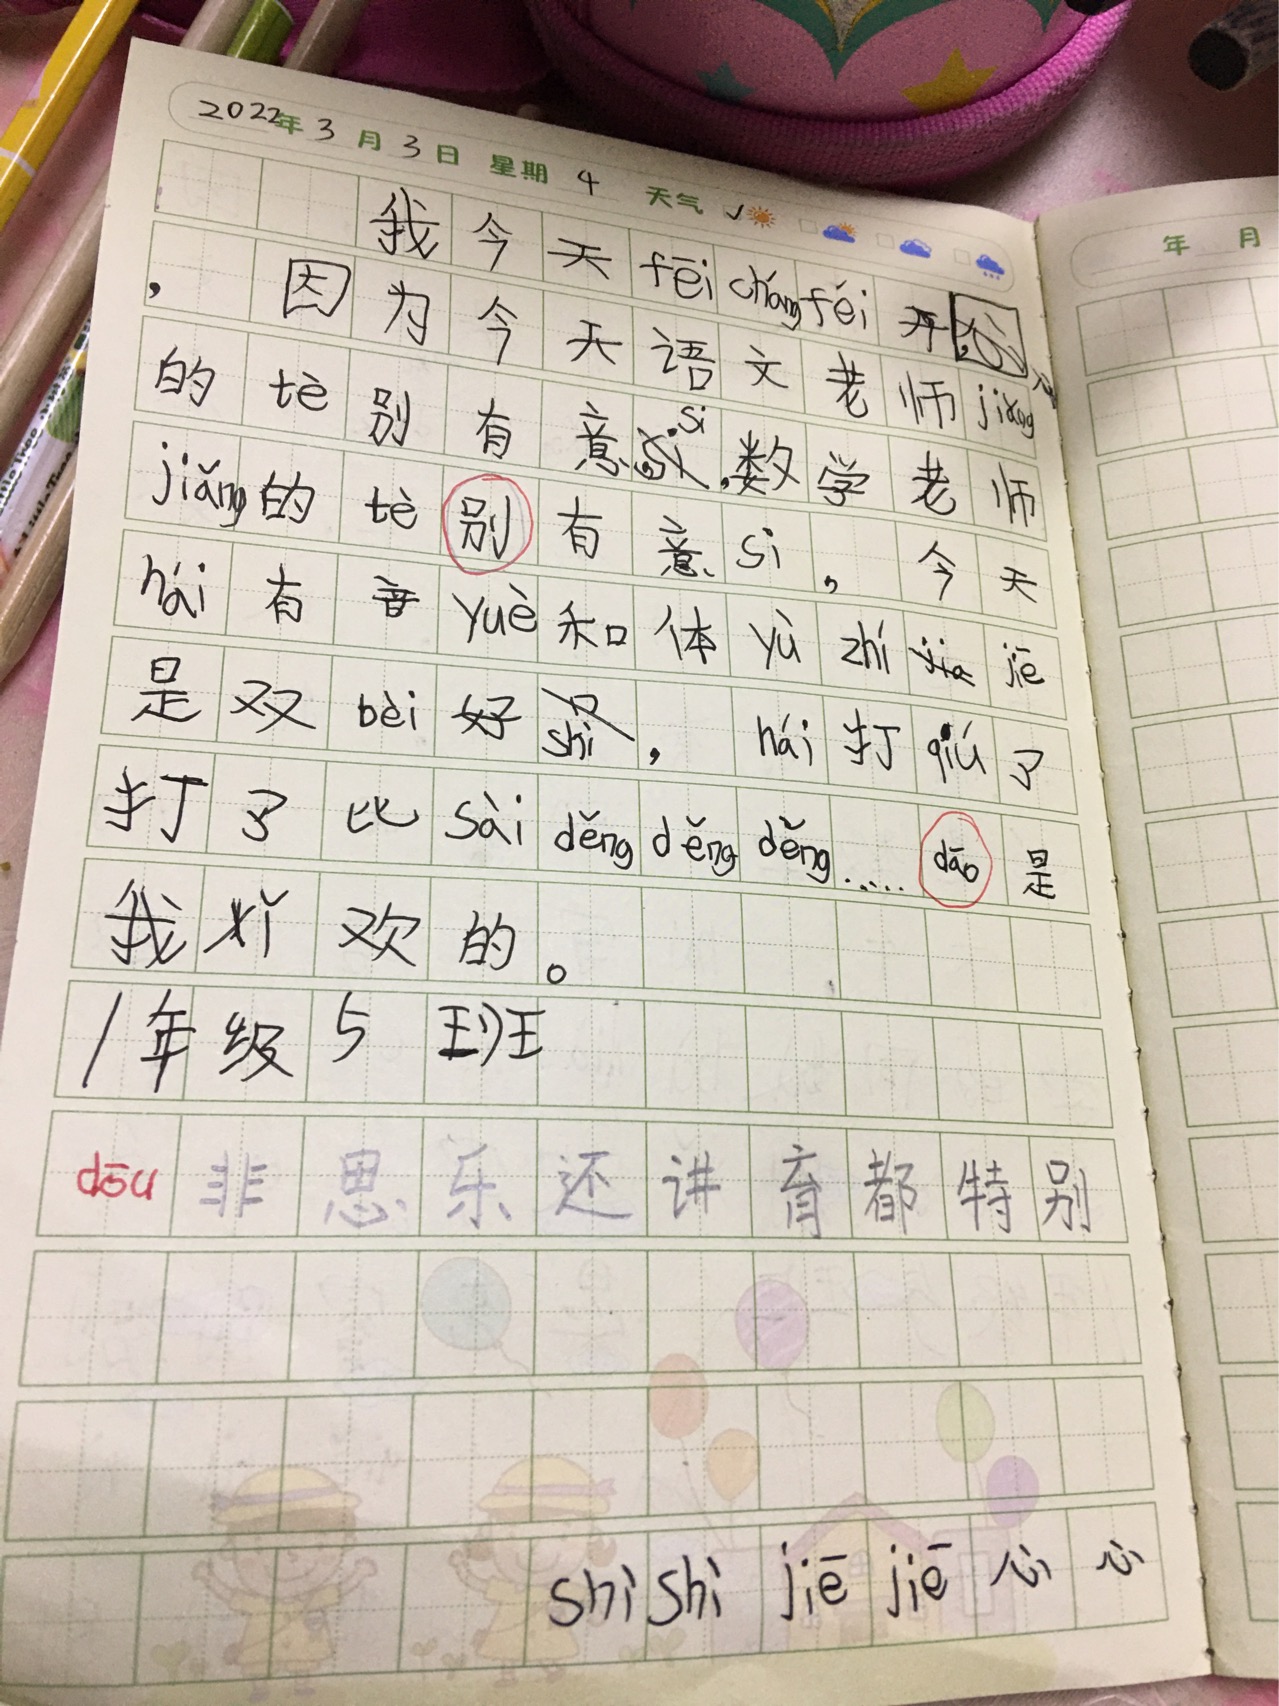 2022年3月3日 星期 4 天气 ✓
我今天fēi cháng fēi开心
，因为今天语文老师jiǎng
的tè别有意si，数学老师
jiǎng的tè别有意si，今天
hái有音yuè和体yù zhí jiē
是双bèi好shì，hái打qiú了
打了比sài děng děng děng……dāo是
我xǐ欢的。
1年级5班
dōu非思乐还讲育都特别
shì shì jiē jiē心心
年 月